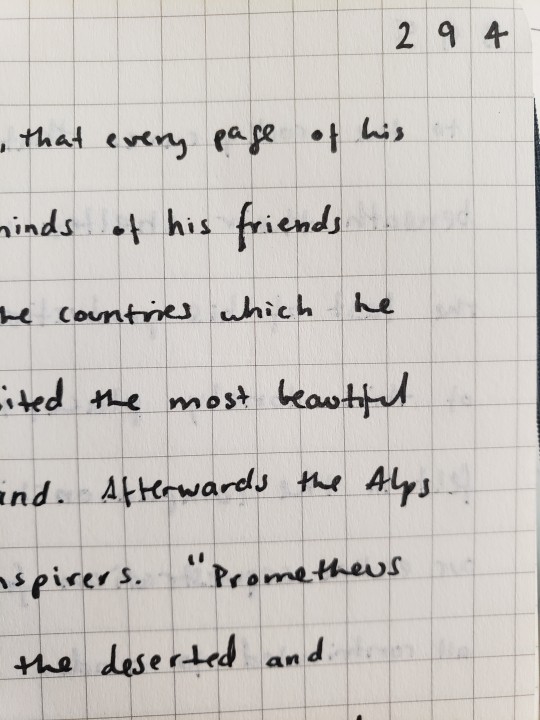 294
, that every page of his
minds of his friends
he countries which he
ited the most beautiful
and. Afterwards the Alps
nspirers. "Prometheus
the deserted and